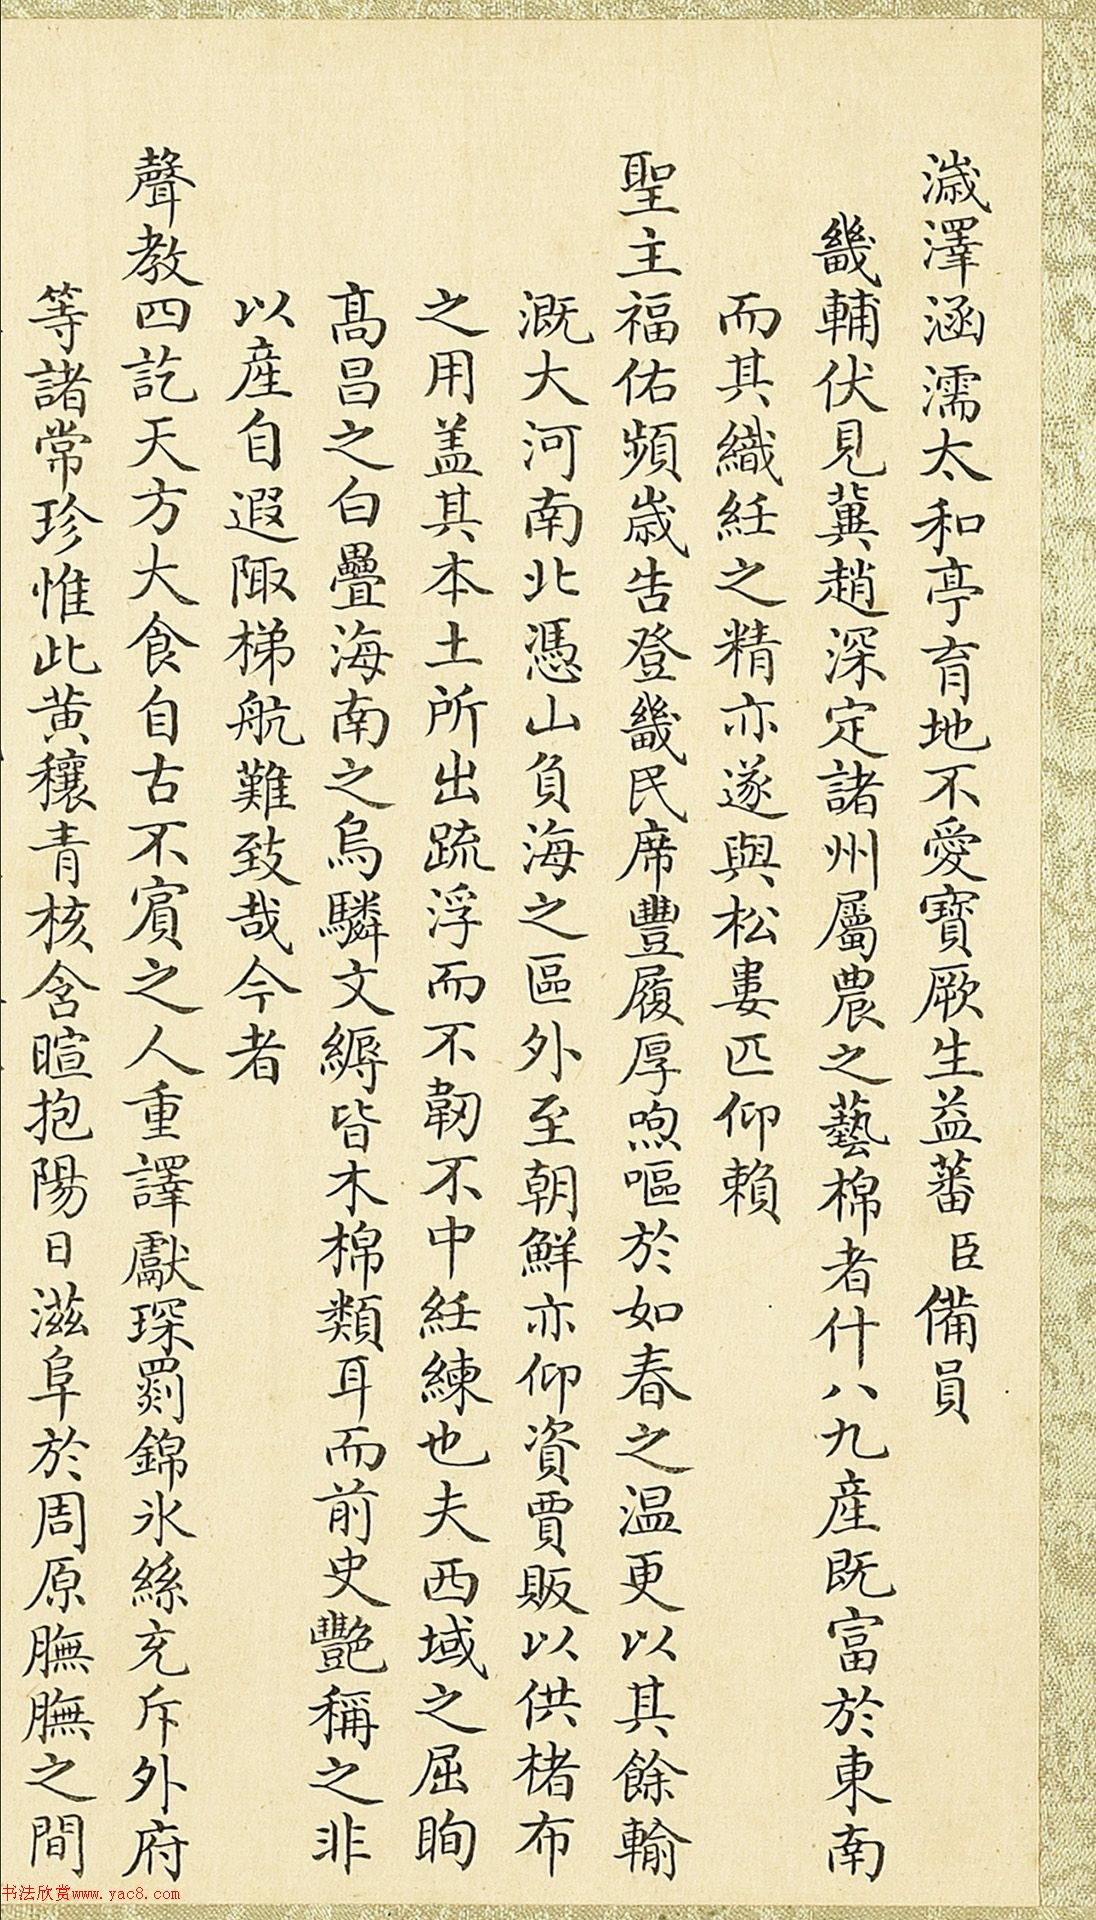 濊澤涵濡太和亭育地不愛寶厥生益蕃臣備員
畿輔伏見冀趙深定諸州屬農之藝棉者什八九產既富於東南
而其織紝之精亦遂與松婁匹仰賴
聖主福佑頻歲告登畿民席豐履厚喣嘔於如春之温更以其餘輸
溉大河南北憑山負海之區外至朝鮮亦仰資賈販以供楮布
之用盖其本土所出疏浮而不韌不中紝練也夫西域之屈眴
髙昌之白疊海南之烏驎文縟皆木棉類耳而前史艷稱之非
以產自遐陬梯航難致哉今者
聲教四訖天方大食自古不賓之人重譯獻琛罽錦氷絲充斥外府
等諸常珍惟此黄穰青核含暄抱陽日滋阜於周原膴膴之間
书法欣赏www.yac8.com